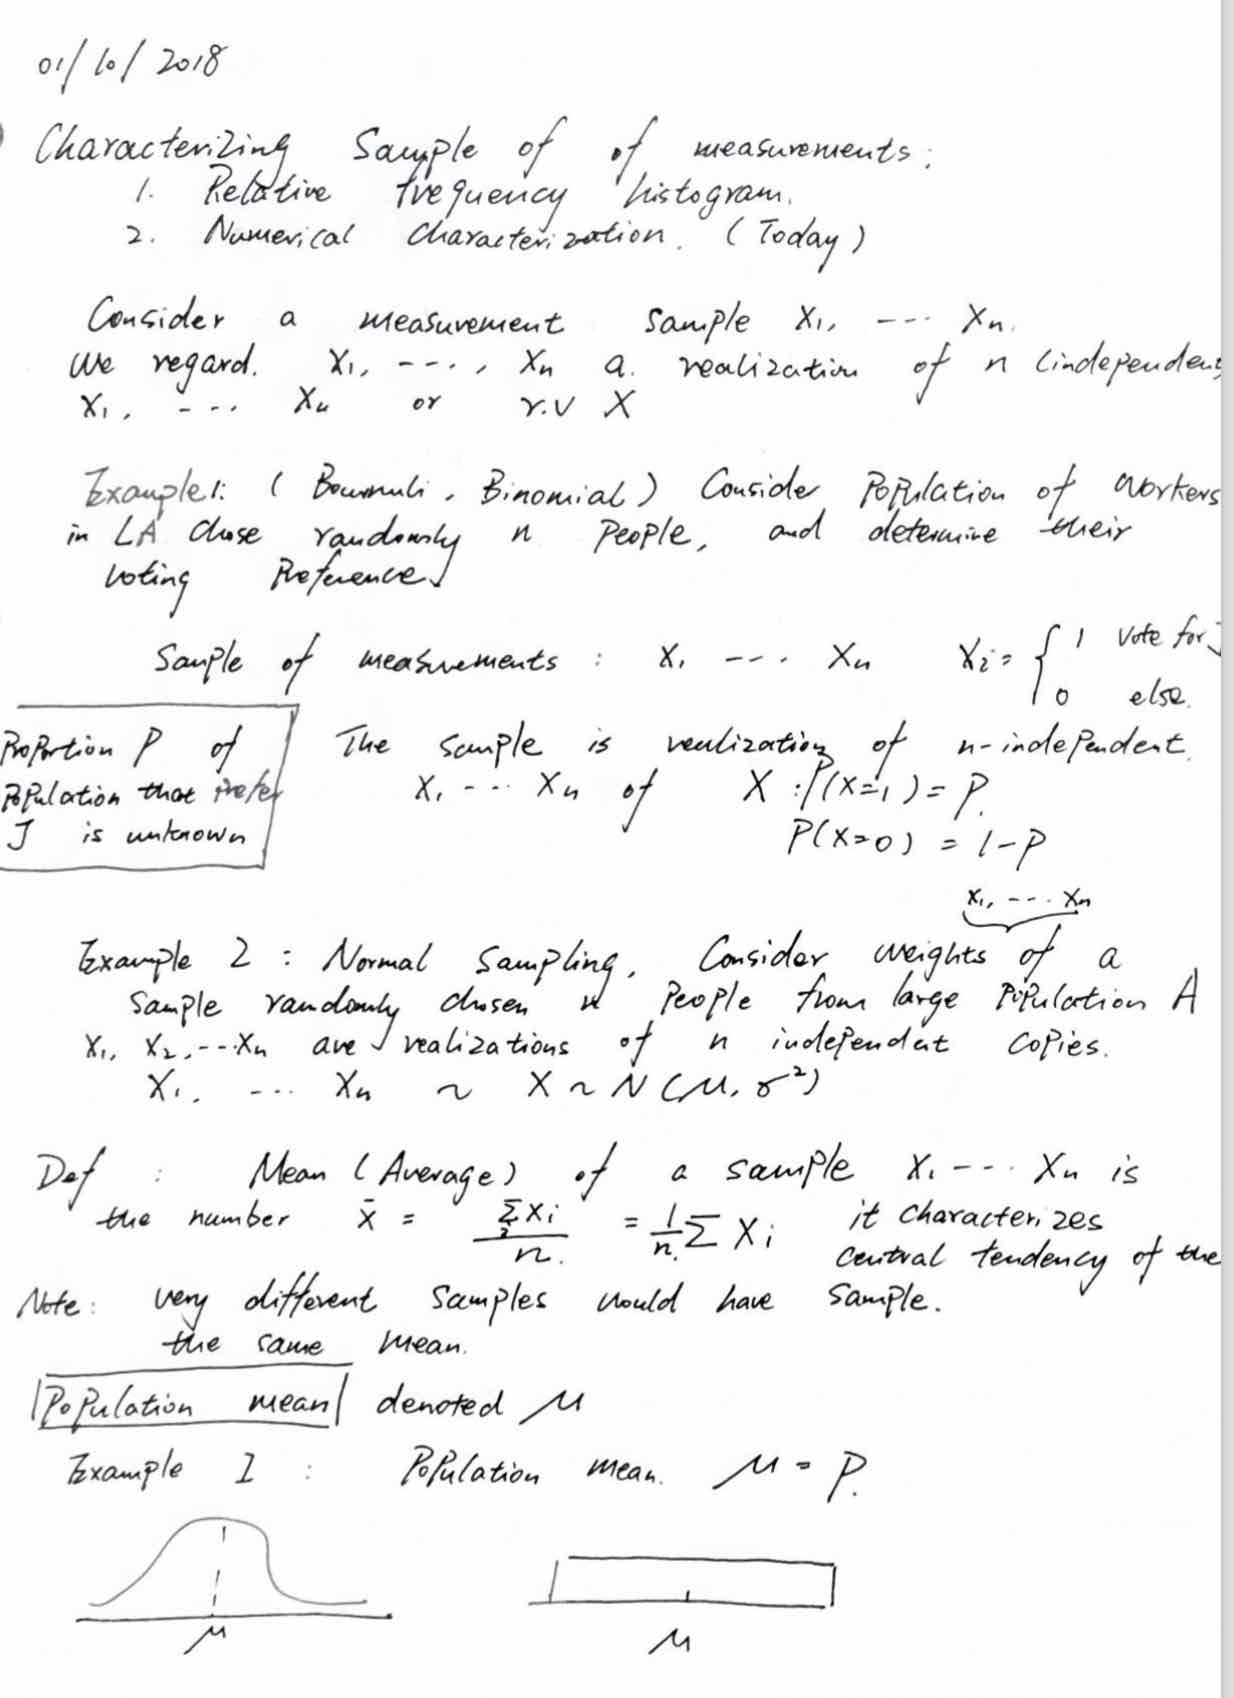 01/10/2018
Characterizing Sample of of measurements:
1. Relative frequency histogram.
2. Numerical Characterization. (Today)
Consider a measurement sample x₁, --- xₙ.
We regard. x₁, ---, xₙ a. realization of n (independent
X₁, --- Xₙ or r.v X
Example1: (Bournuli, Binomial) Consider Population of workers
in LA chose randomly n people, and determine their
voting Preference.
Sample of measurements : x₁ --- xₙ xᵢ = { 1 vote for J
0 else.
Proportion P of
Population that prefer
J is unknown
The sample is realization of n-independent.
X₁ --- Xₙ of X : P(X=1) = P.
P(X=0) = 1-P
x₁, --- xₙ
Example 2 : Normal sampling. Consider weights of a
sample randomly chosen n people from large Population A
x₁, x₂, --- xₙ are realizations of n independent copies.
X₁, --- Xₙ ~ X ~ N(μ, σ²)
Def : Mean (Average) of a sample x₁ --- xₙ is
the number x̄ = Σxᵢ/n. = 1/n. Σ xᵢ it characterizes
central tendency of the
sample.
Note: very different samples would have
the same mean.
Population mean denoted μ
Example 1 : Population mean. μ = P.
μ
μ